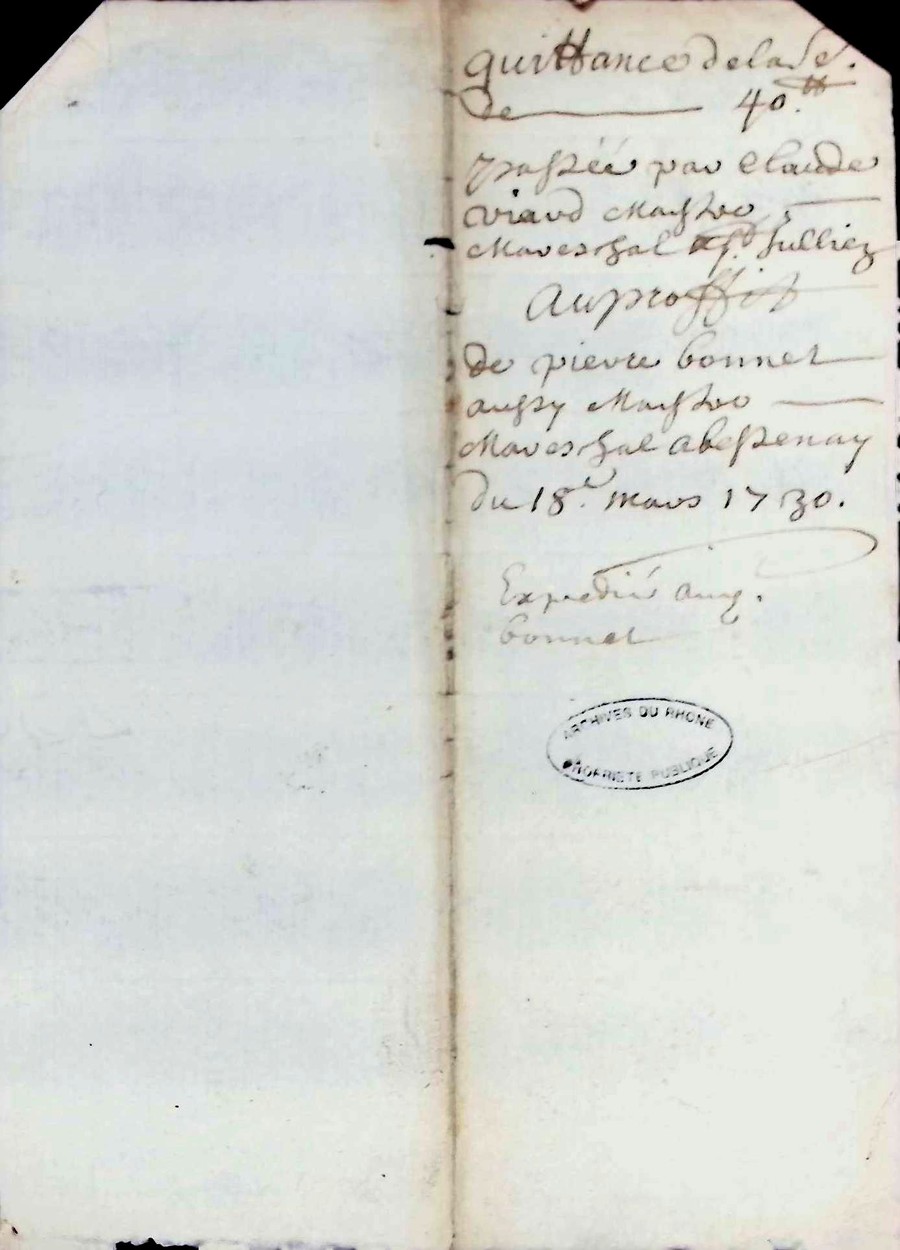 quitttance dela Se.
de 40.tt
passéé par Claude
viard Maystre
Mareschal St. Sulliez
Auproffit
de pierre bonnet
aussy Maystre
Mareschal abessenay
du 18.e mars 1730.
Expedié
bonnet
ARCHIVES DU RHONE
PROPRIETE PUBLIQUE